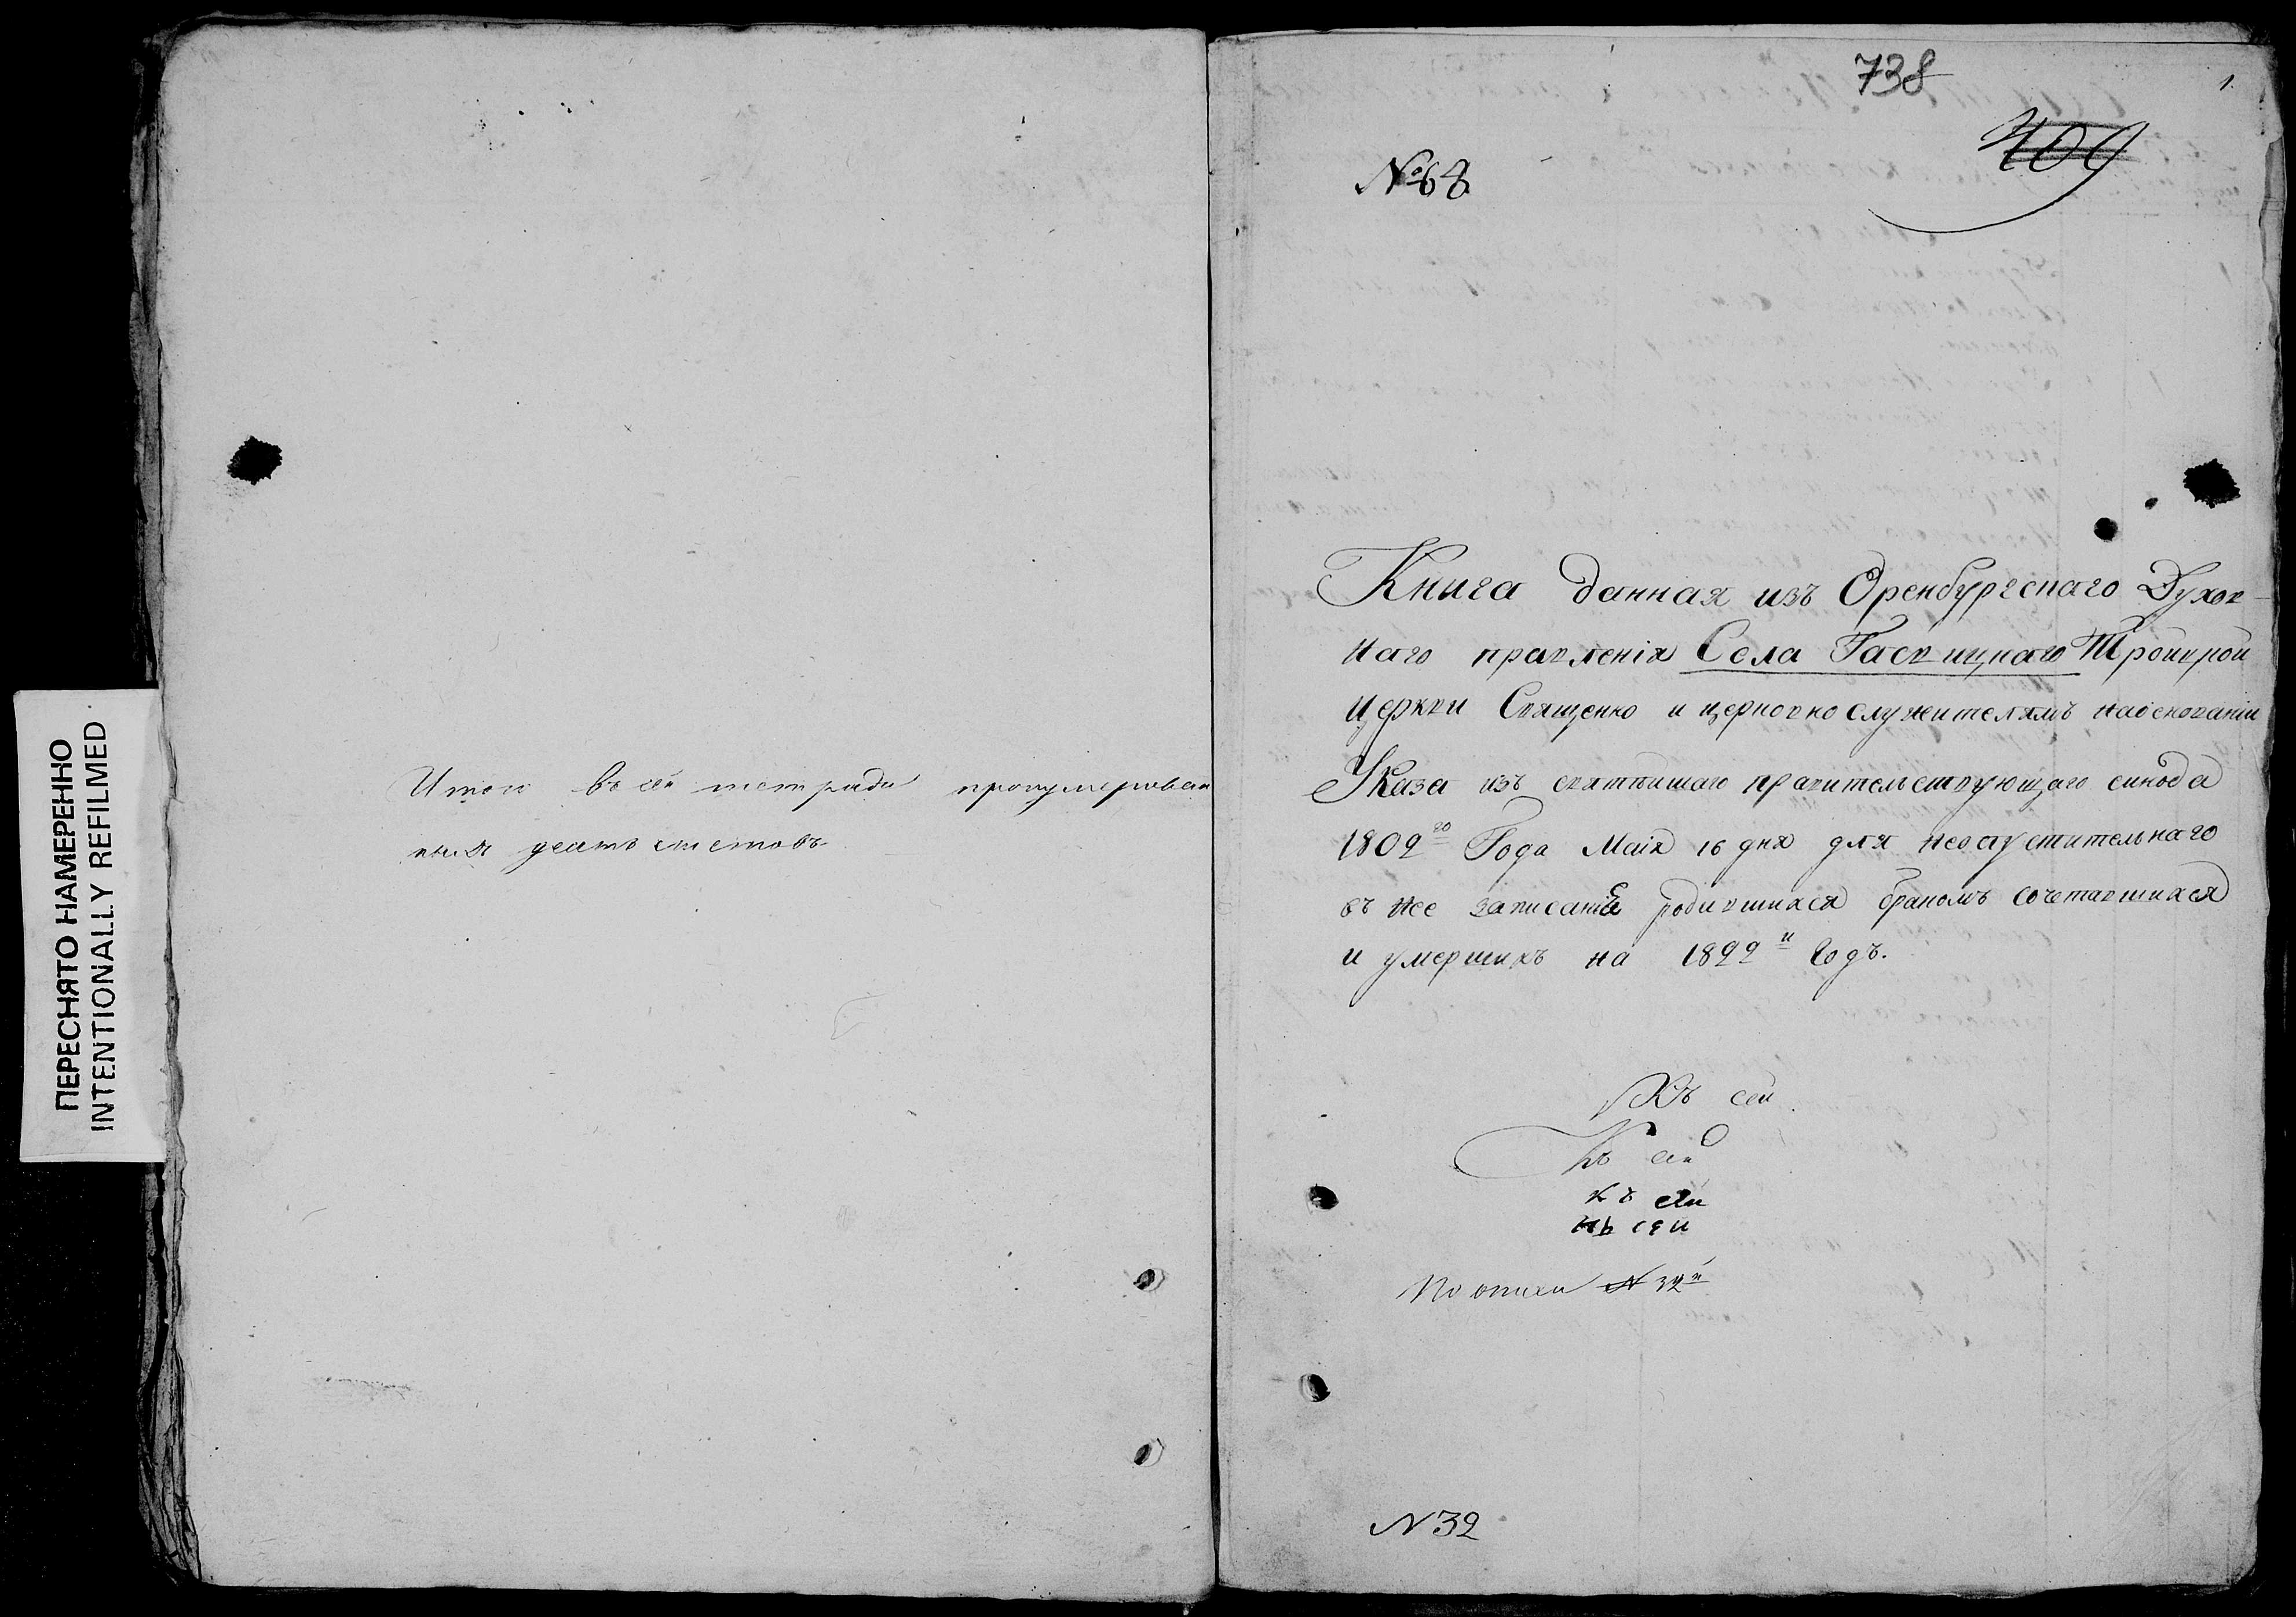 ПЕРЕСНЯТО НАМЕРЕННО
INTENTIONALLY REFILMED
Итого въ сей тетради пронумерован
ныхъ десять листовъ
738
1.
409
№68
Книга данная изъ Оренбургскаго Духов-
наго правленія Села Троицкой
церкви Священно и церковнослужителямъ наосновании
Указа изъ святѣйшаго правительствующаго синода
1802го Года Маія 16 дня для неопустительнаго
въ нее записанія родившихся бракомъ сочетавшихся
и умершихъ на 1822й Годъ.
Къ сей
Къ сей
къ сей
Къ сей
По описи № 32й
N 32